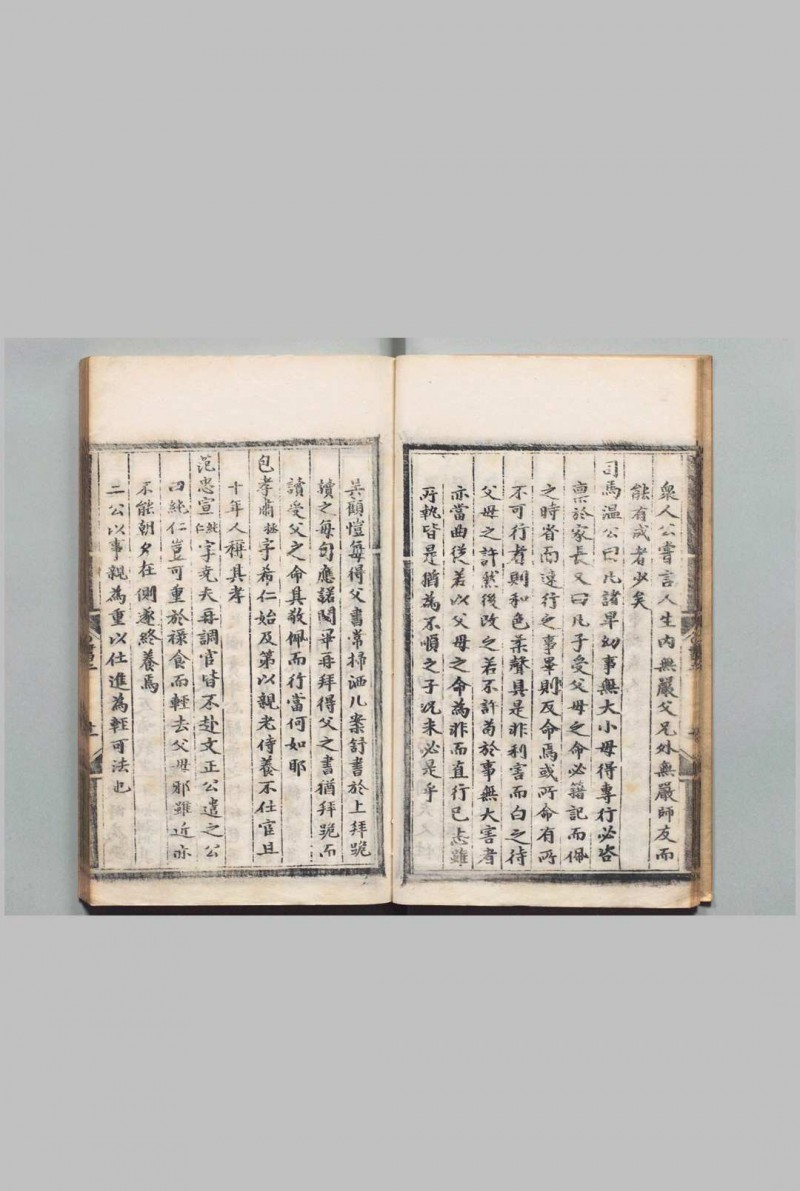 衆人公嘗言人生內無嚴父兄外無嚴師友而
能有成者少矣
司馬溫公曰凡諸卑幼事無大小毋得專行必咨
稟於家長又曰凡子受父母之命必籍記而佩
之時省而速行之事畢則反命焉或所命有所
不可行者則和色柔聲具是非利害而白之待
父母之許然後改之若不許苟於事無大害者
亦當曲從若以父母之命為非而直行己志雖
所執皆是猶為不順之子况未必是乎
吳顧愷每得父書常掃洒几案舒書於上拜跪
讀之每句應諾閱畢再拜得父之書猶拜跪而
讀受父之命其敬佩而行當何如耶
包孝肅拯字希仁始及第以親老侍養不仕宦且
十年人稱其孝
范忠宣純仁字堯夫再調官皆不赴文正公遣之公
曰純仁豈可重於祿食而輕去父母邪雖近亦
不能朝夕在側遂終養焉
二公以事親為重以仕進為輕可法也